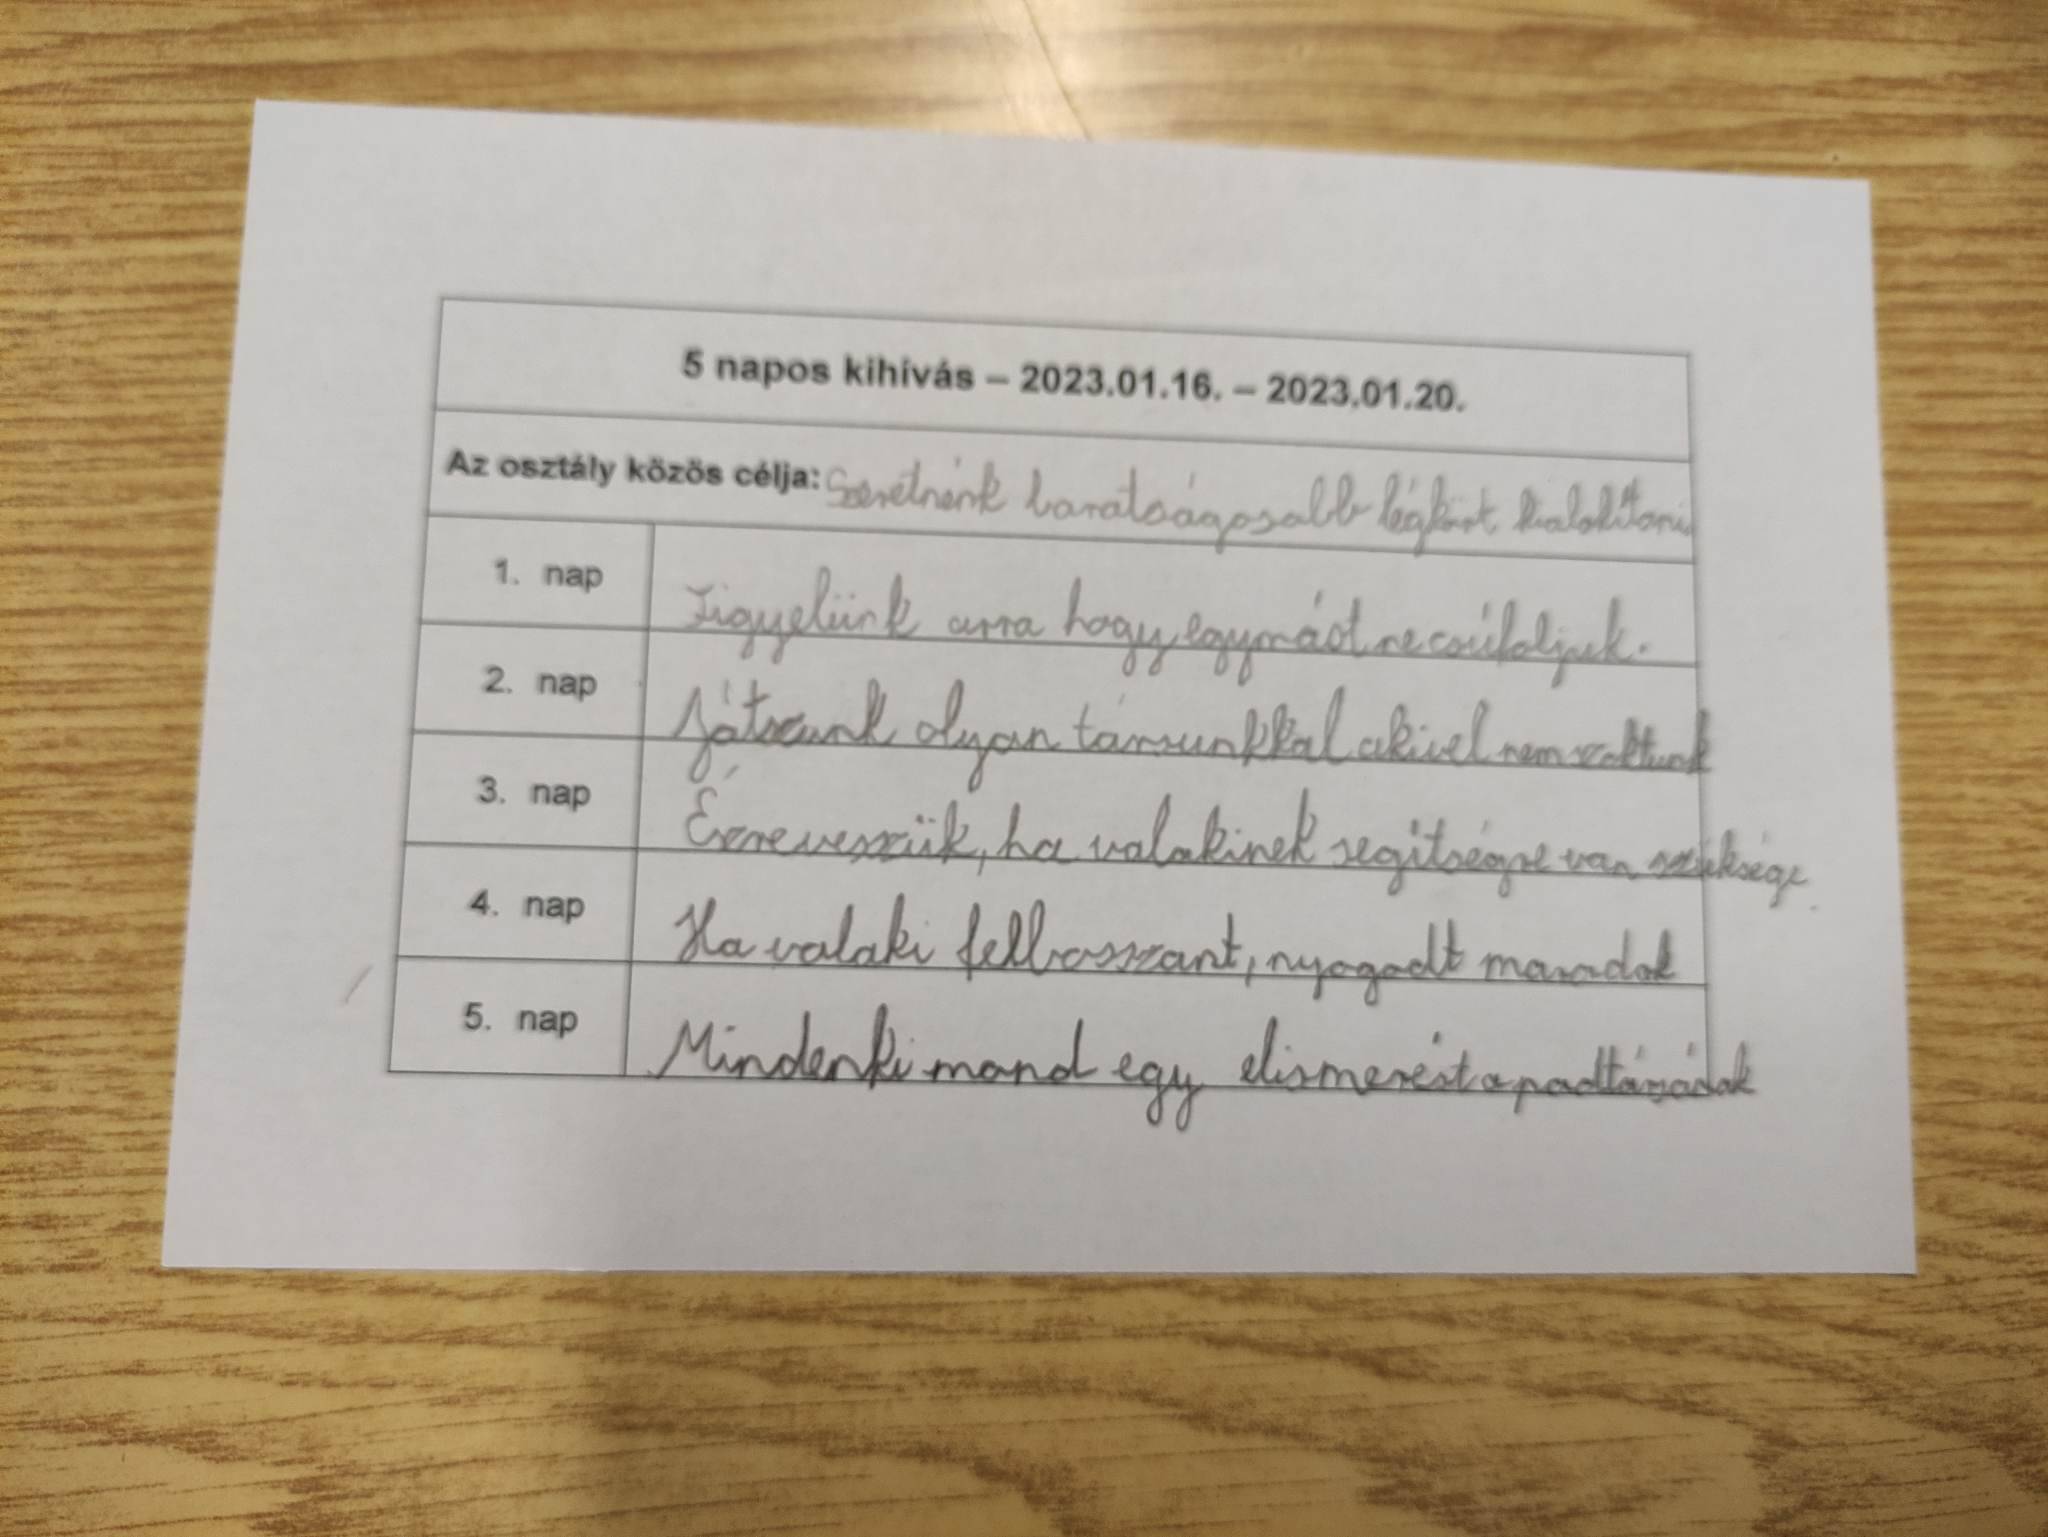 5 napos kihívás – 2023.01.16. – 2023.01.20.
Az osztály közös célja: Szeretnénk barátságosabb légkört kialakítani
1. nap Figyelünk arra hogy egymást ne csúfoljuk.
2. nap Játszunk olyan társunkkal akivel nem szoktunk
3. nap Észrevesszük, ha valakinek segítségre van szüksége.
4. nap Ha valaki felbosszant, nyugodt maradok
5. nap Mindenki mond egy elismerést a